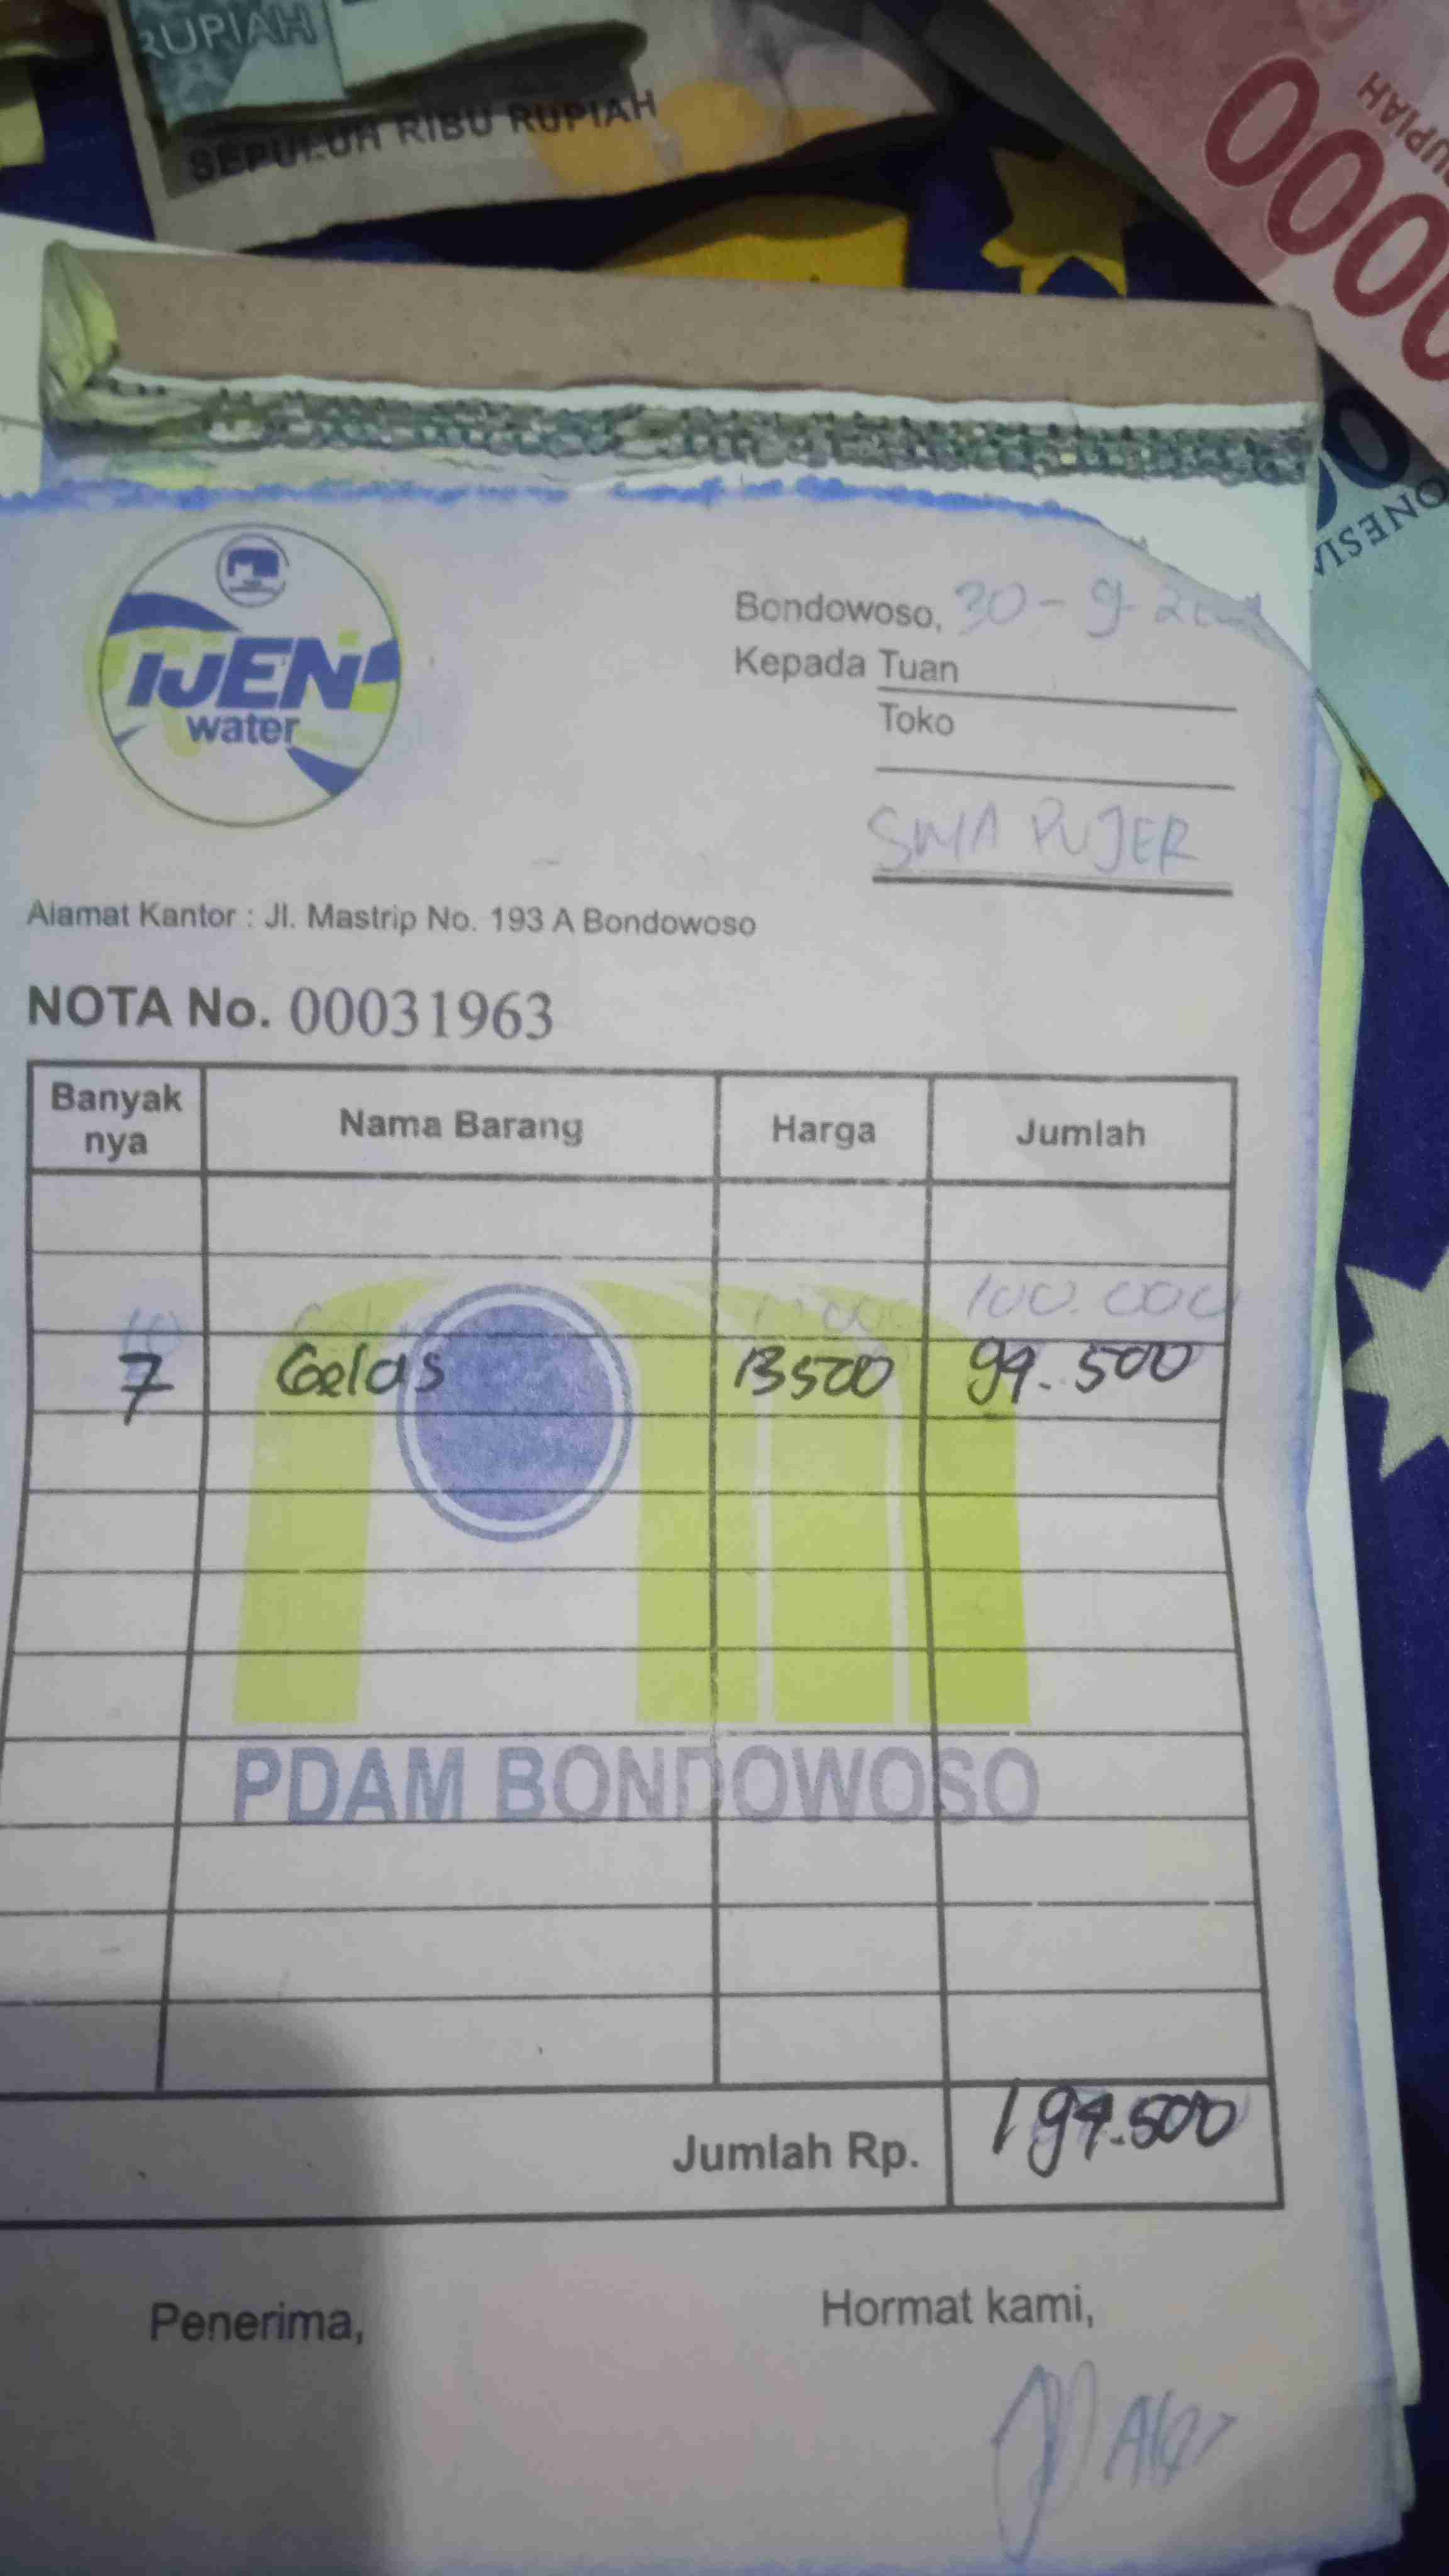 RUPIAH
SEPULUH RIBU RUPIAH
0000
RUPIAH
ONESIA
IJEN
water
Bondowoso, 30-9-
Kepada Tuan
Toko
SMA PUJER
Alamat Kantor : Jl. Mastrip No. 193 A Bondowoso
NOTA No. 00031963
Banyak nya Nama Barang Harga Jumlah
10 100.000
7 Gelas 13500 94.500
PDAM BONDOWOSO
Jumlah Rp. 194.500
Penerima, Hormat kami,